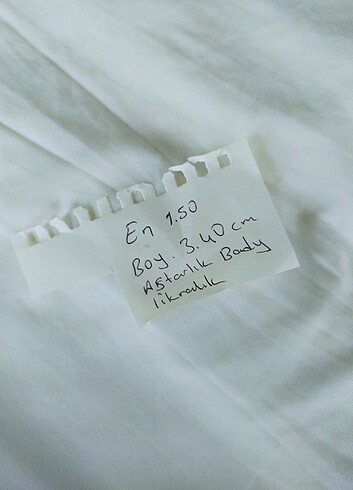 En 1.50
Boy. 3.40 cm
Astarlık Body
likralık